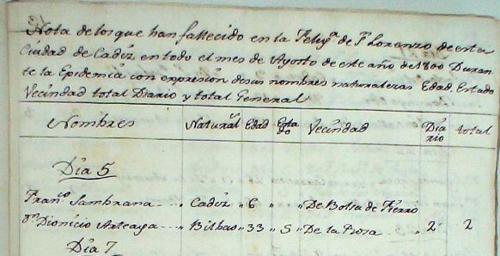 Nota de los que han fallecido en la Felig.ª de S Lorenzo de esta
Ciudad de Cadiz en todo el mes de Agosto de este año de 1800 Duran
te la Epidemia con expresion de sus nombres naturalezas Edad, Estado
Vecindad total Diario y total General
Nombres Natural Edad Esta do Vecindad Dia rio total
Dia 5
Fran.co Sambrana Cadiz 6 De Bolsa de Fierro
D.n Dionicio Arteaga Bilbao 33 S De la Rosa 2 2
Dia 7